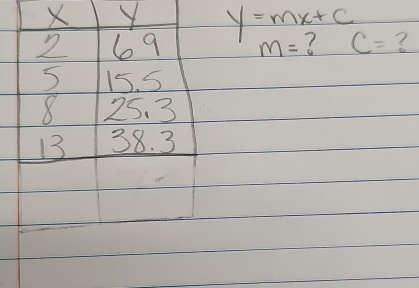 X Y y=mx+c
2 69 m=? C=?
5 15.5
8 25.3
13 38.3